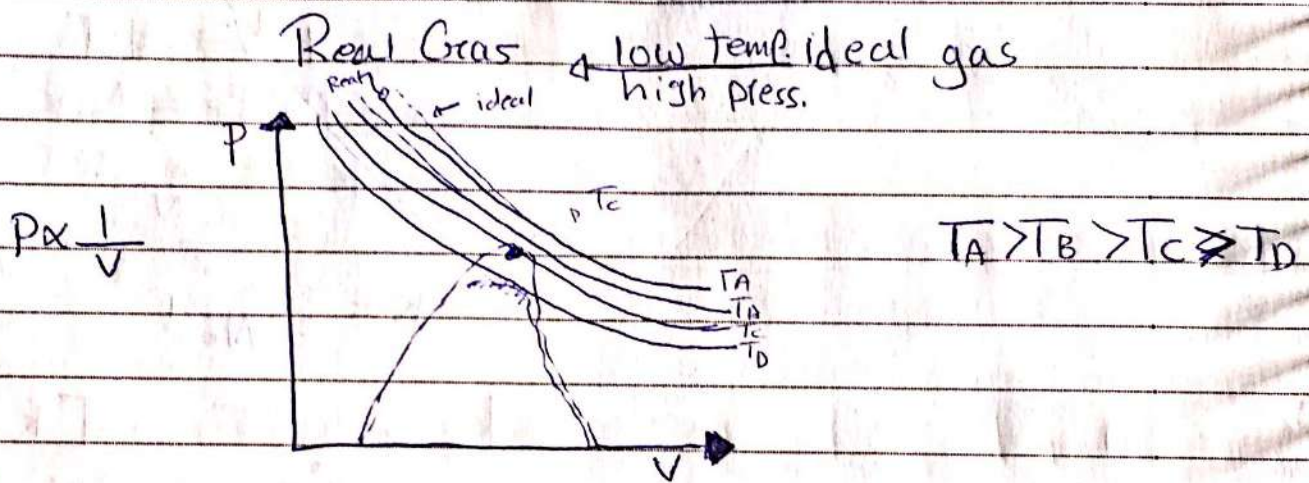 Real Gas ← low temp. ideal gas
high press.
Real
← ideal
P
Tc
P ∝ 1/V
TA > TB > TC > TD
TA
TC
TD
V